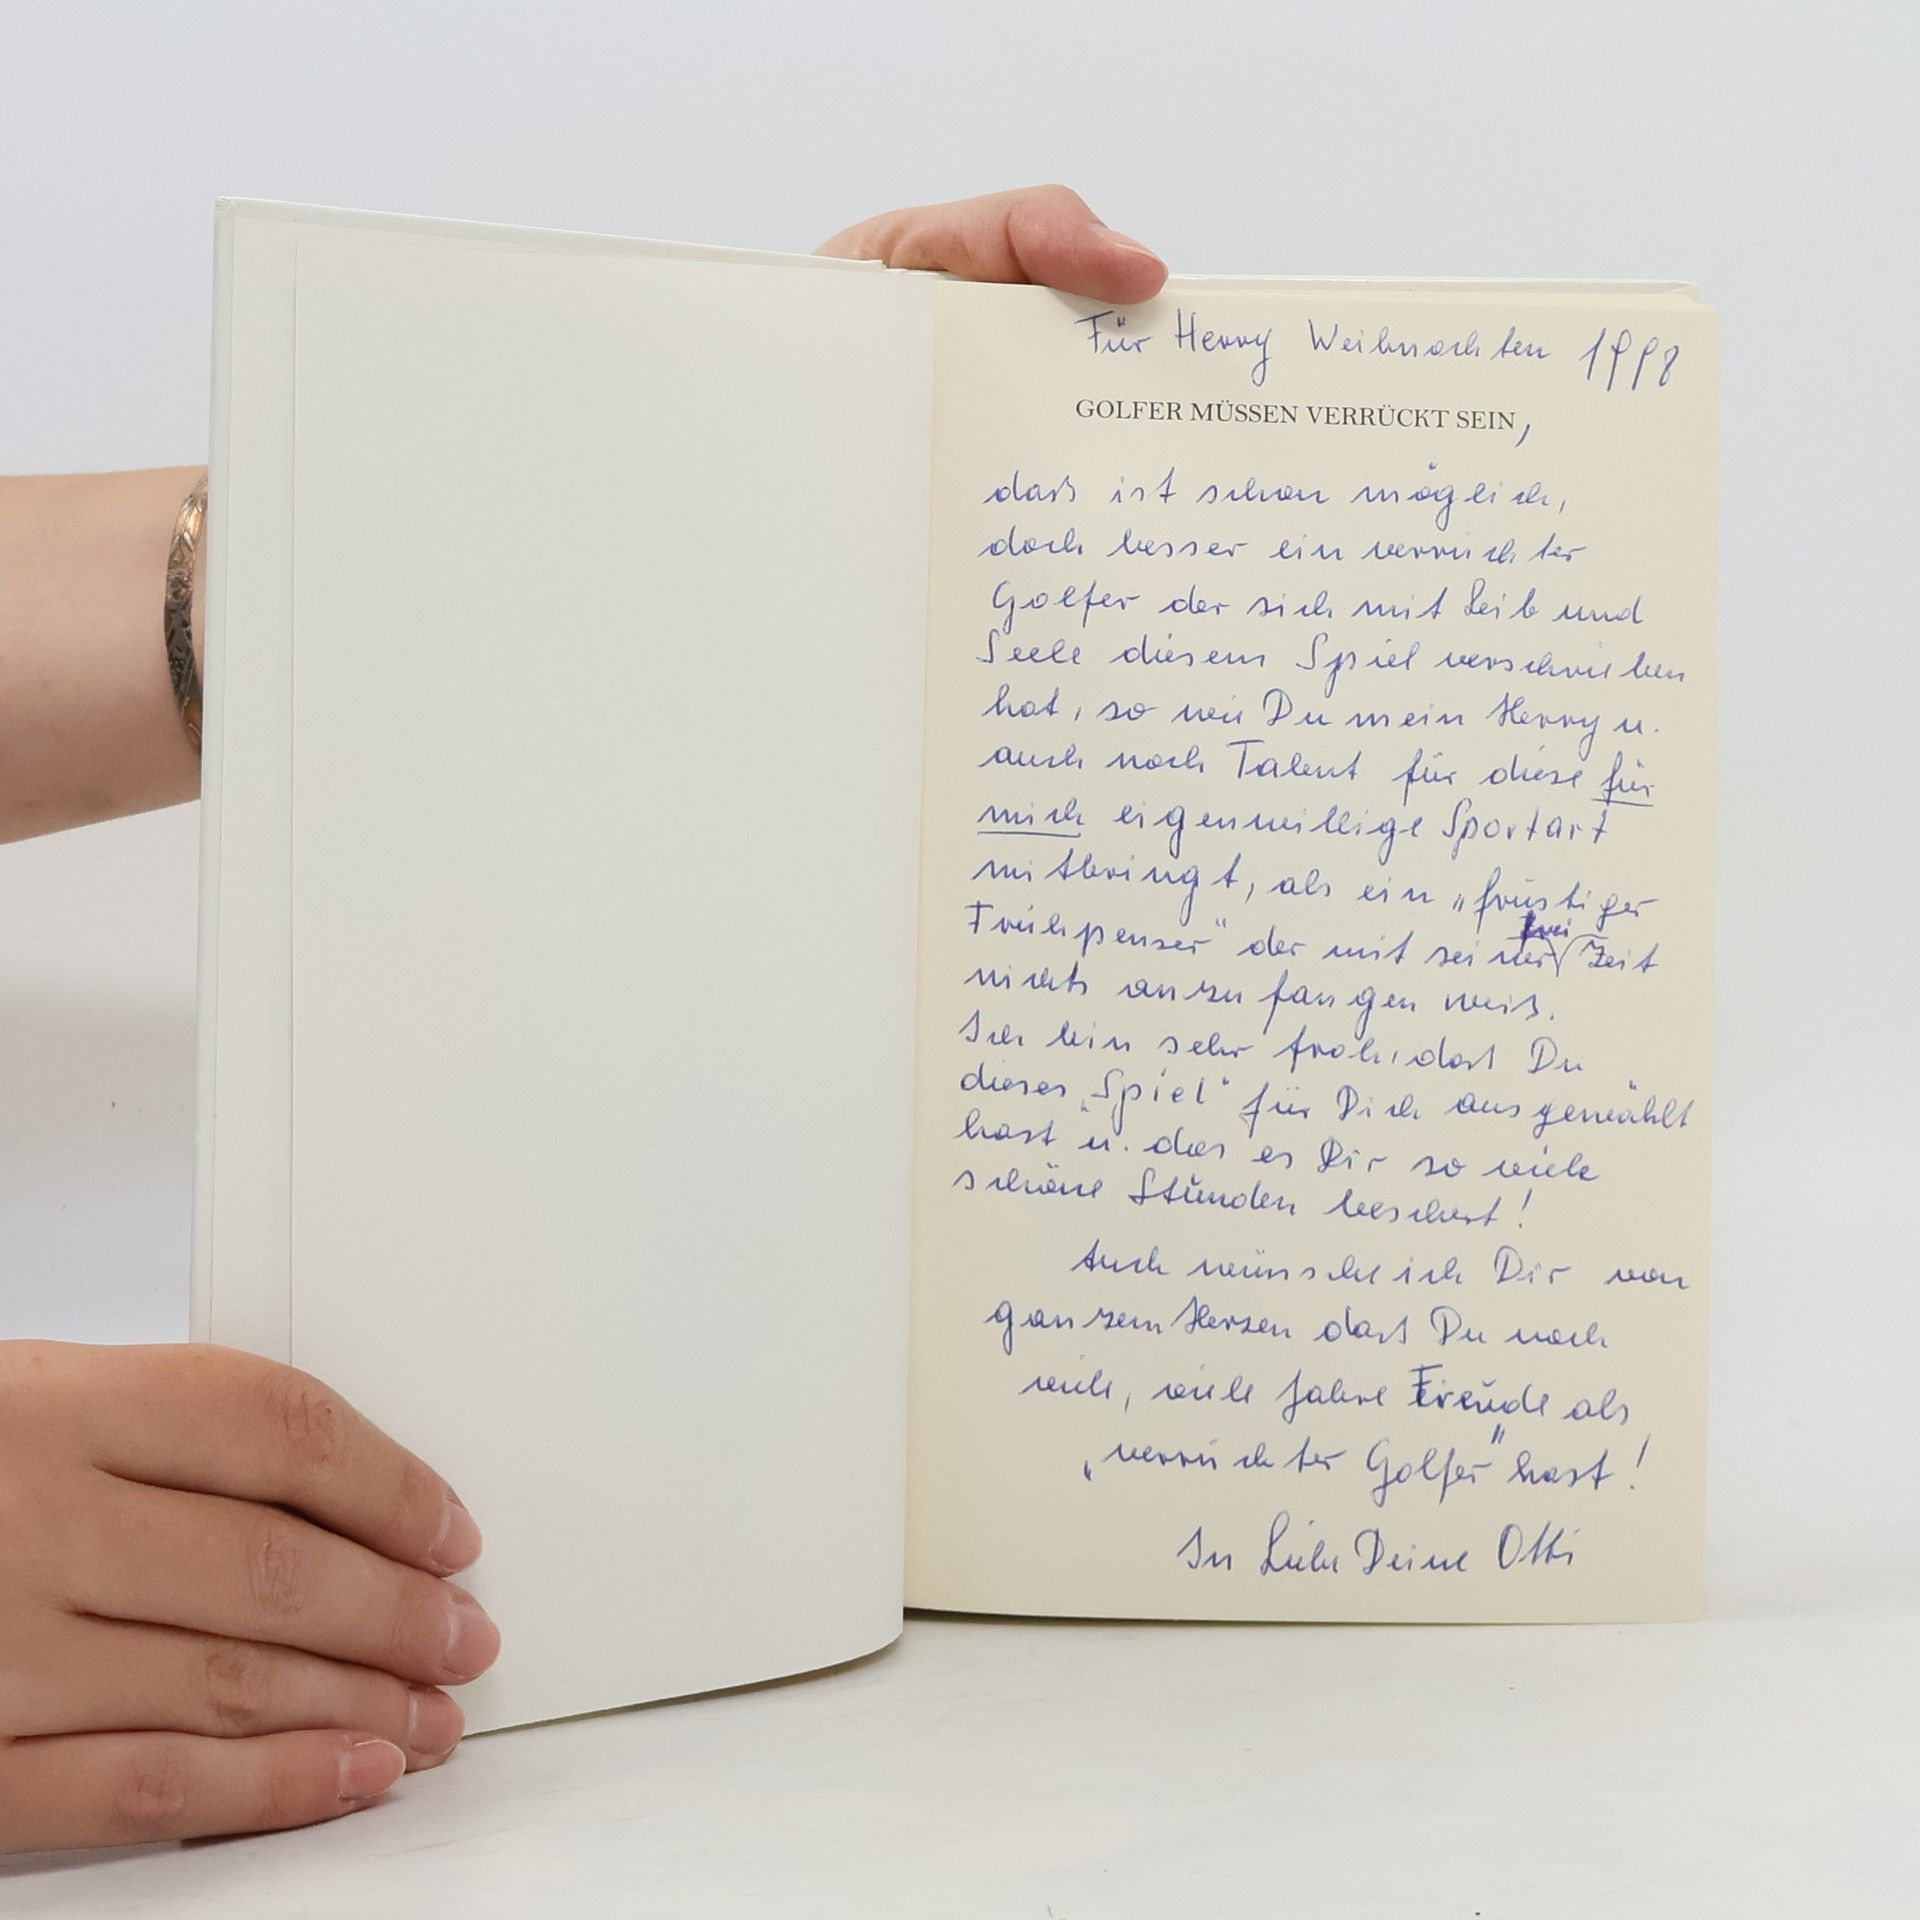 Für Herry Weihnachten 1998
GOLFER MÜSSEN VERRÜCKT SEIN,
das ist schon möglich,
doch besser ein verrückter
Golfer der sich mit Leib und
Seele diesem Spiel verschrieben
hat, so wie Du mein Herry u.
auch noch Talent für diese für
mich eigenwillige Sportart
mitbringt, als ein „frustiger
Frühpenser" der mit seiner frei Zeit
nichts anzufangen weiß.
Ich bin sehr froh, dass Du
dieses „Spiel" für Dich ausgewählt
hast u. das es Dir so viele
schöne Stunden beschert!
Auch wünsche ich Dir von
ganzem Herzen dass Du noch
viele, viele Jahre Freude als
„verrückter Golfer" hast!
In Liebe Deine Otti